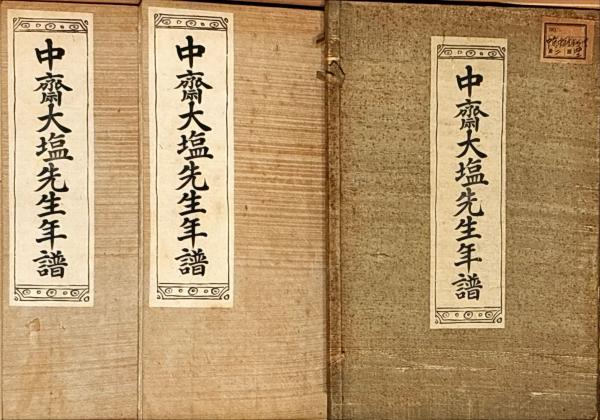 中齋大塩先生年譜
中齋大塩先生年譜
中齋大塩先生年譜